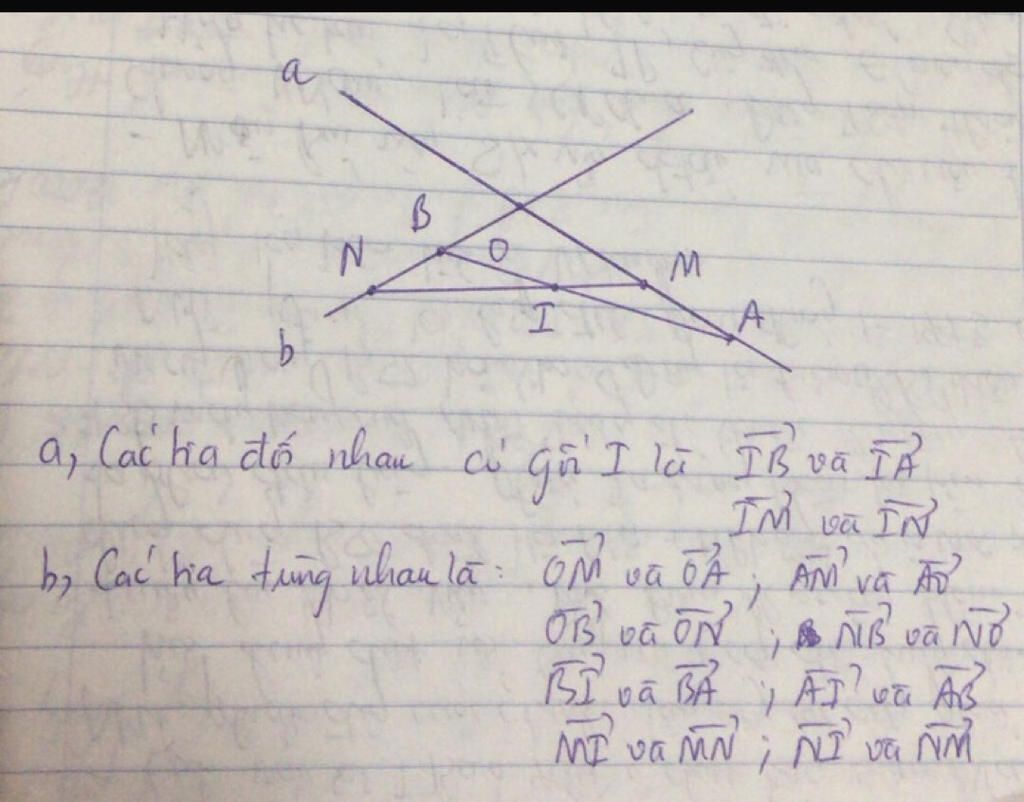 a
B
N
O
M
I
A
b
a, Các tia đối nhau có gốc I là IB và IA
IM và IN
b, Các tia trùng nhau là: OM và OA ; AM và AO
OB và ON ; NB và NO
BI và BA ; AI và AB
MI và MN ; NI và NM